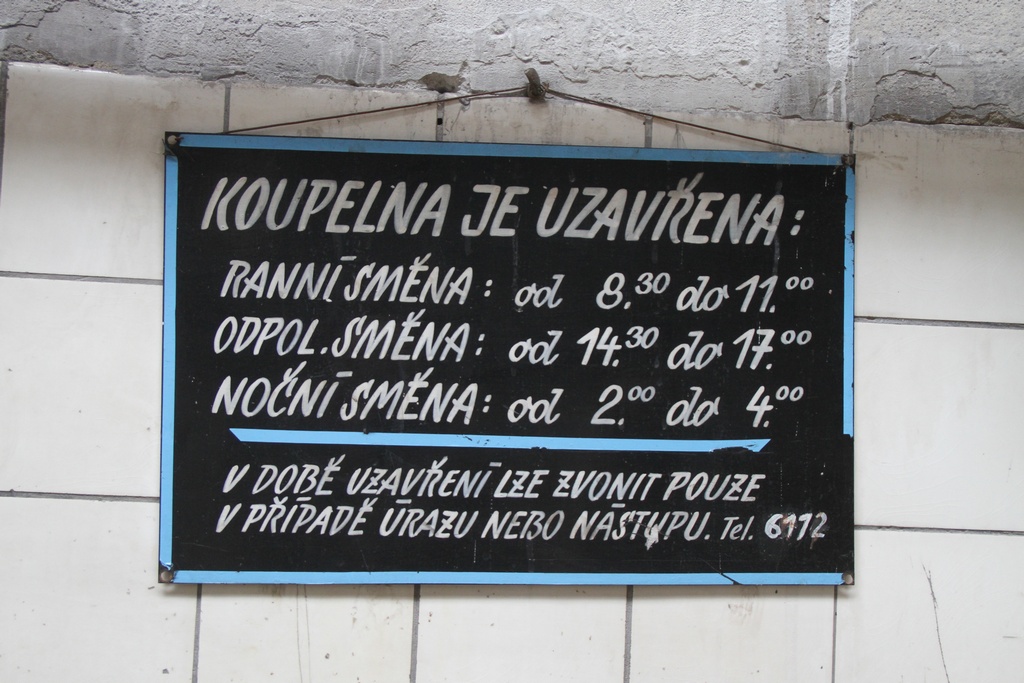 KOUPELNA JE UZAVŘENA:
RANNÍ SMĚNA: od 8.30 do 11.00
ODPOL. SMĚNA: od 14.30 do 17.00
NOČNÍ SMĚNA: od 2.00 do 4.00
V DOBĚ UZAVŘENÍ LZE ZVONIT POUZE
V PŘÍPADĚ ÚRAZU NEBO NÁSTUPU. Tel.